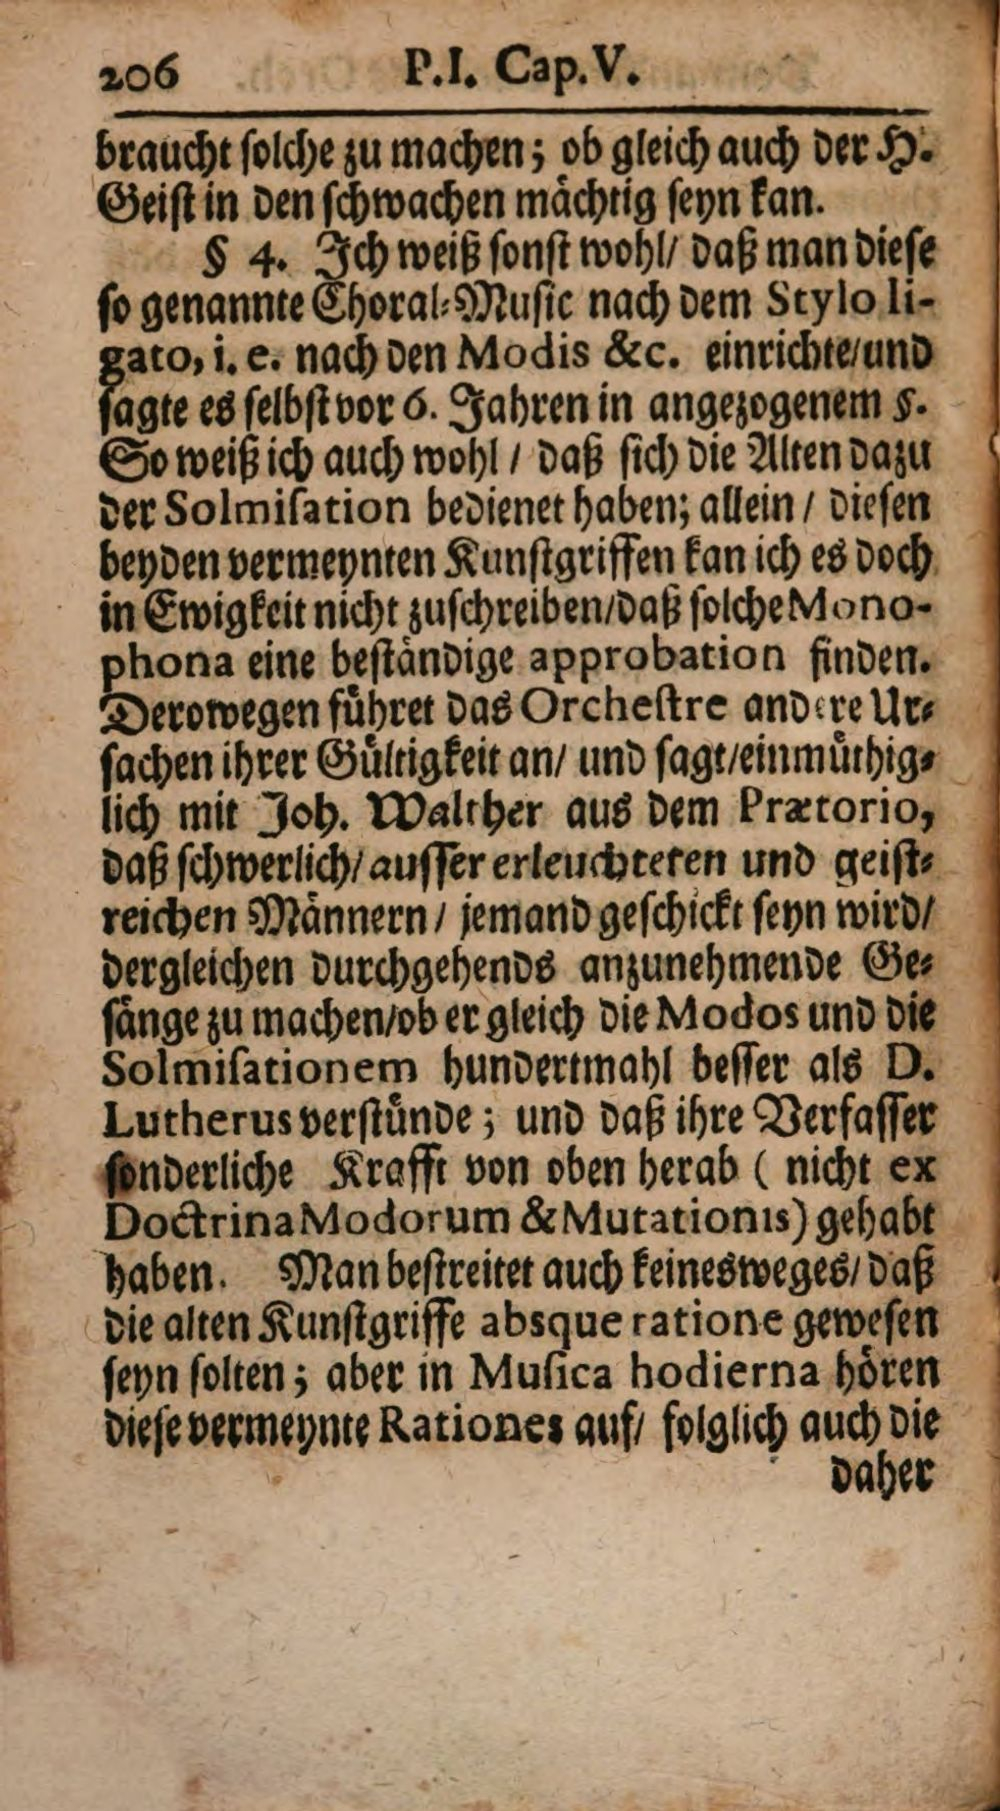 206 P. I. Cap. V.
braucht solche zu machen; ob gleich auch der H.
Geist in den schwachen mächtig seyn kan.
§ 4. Ich weiß sonst wohl/ daß man diese
so genannte Choral-Music nach dem Stylo li-
gato, i. e. nach den Modis &c. einrichte/und
sagte es selbst vor 6. Jahren in angezogenem §.
So weiß ich auch wohl / daß sich die Alten dazu
der Solmisation bedienet haben; allein / diesen
beyden vermeynten Kunstgriffen kan ich es doch
in Ewigkeit nicht zuschreiben/daß solche Mono-
phona eine beständige approbation finden.
Derowegen führet das Orchestre andere Ur-
sachen ihrer Gültigkeit an/ und sagt/einmüthig-
lich mit Joh. Walther aus dem Prætorio,
daß schwerlich/ ausser erleuchteten und geist-
reichen Männern / jemand geschickt seyn wird/
dergleichen durchgehends anzunehmende Ge-
sänge zu machen/ob er gleich die Modos und die
Solmisationem hundertmahl besser als D.
Lutherus verstünde; und daß ihre Verfasser
sonderliche Krafft von oben herab ( nicht ex
Doctrina Modorum & Mutationis) gehabt
haben. Man bestreitet auch keinesweges/ daß
die alten Kunstgriffe absque ratione gewesen
seyn solten; aber in Musica hodierna hören
diese vermeynte Rationes auf/ folglich auch die
daher